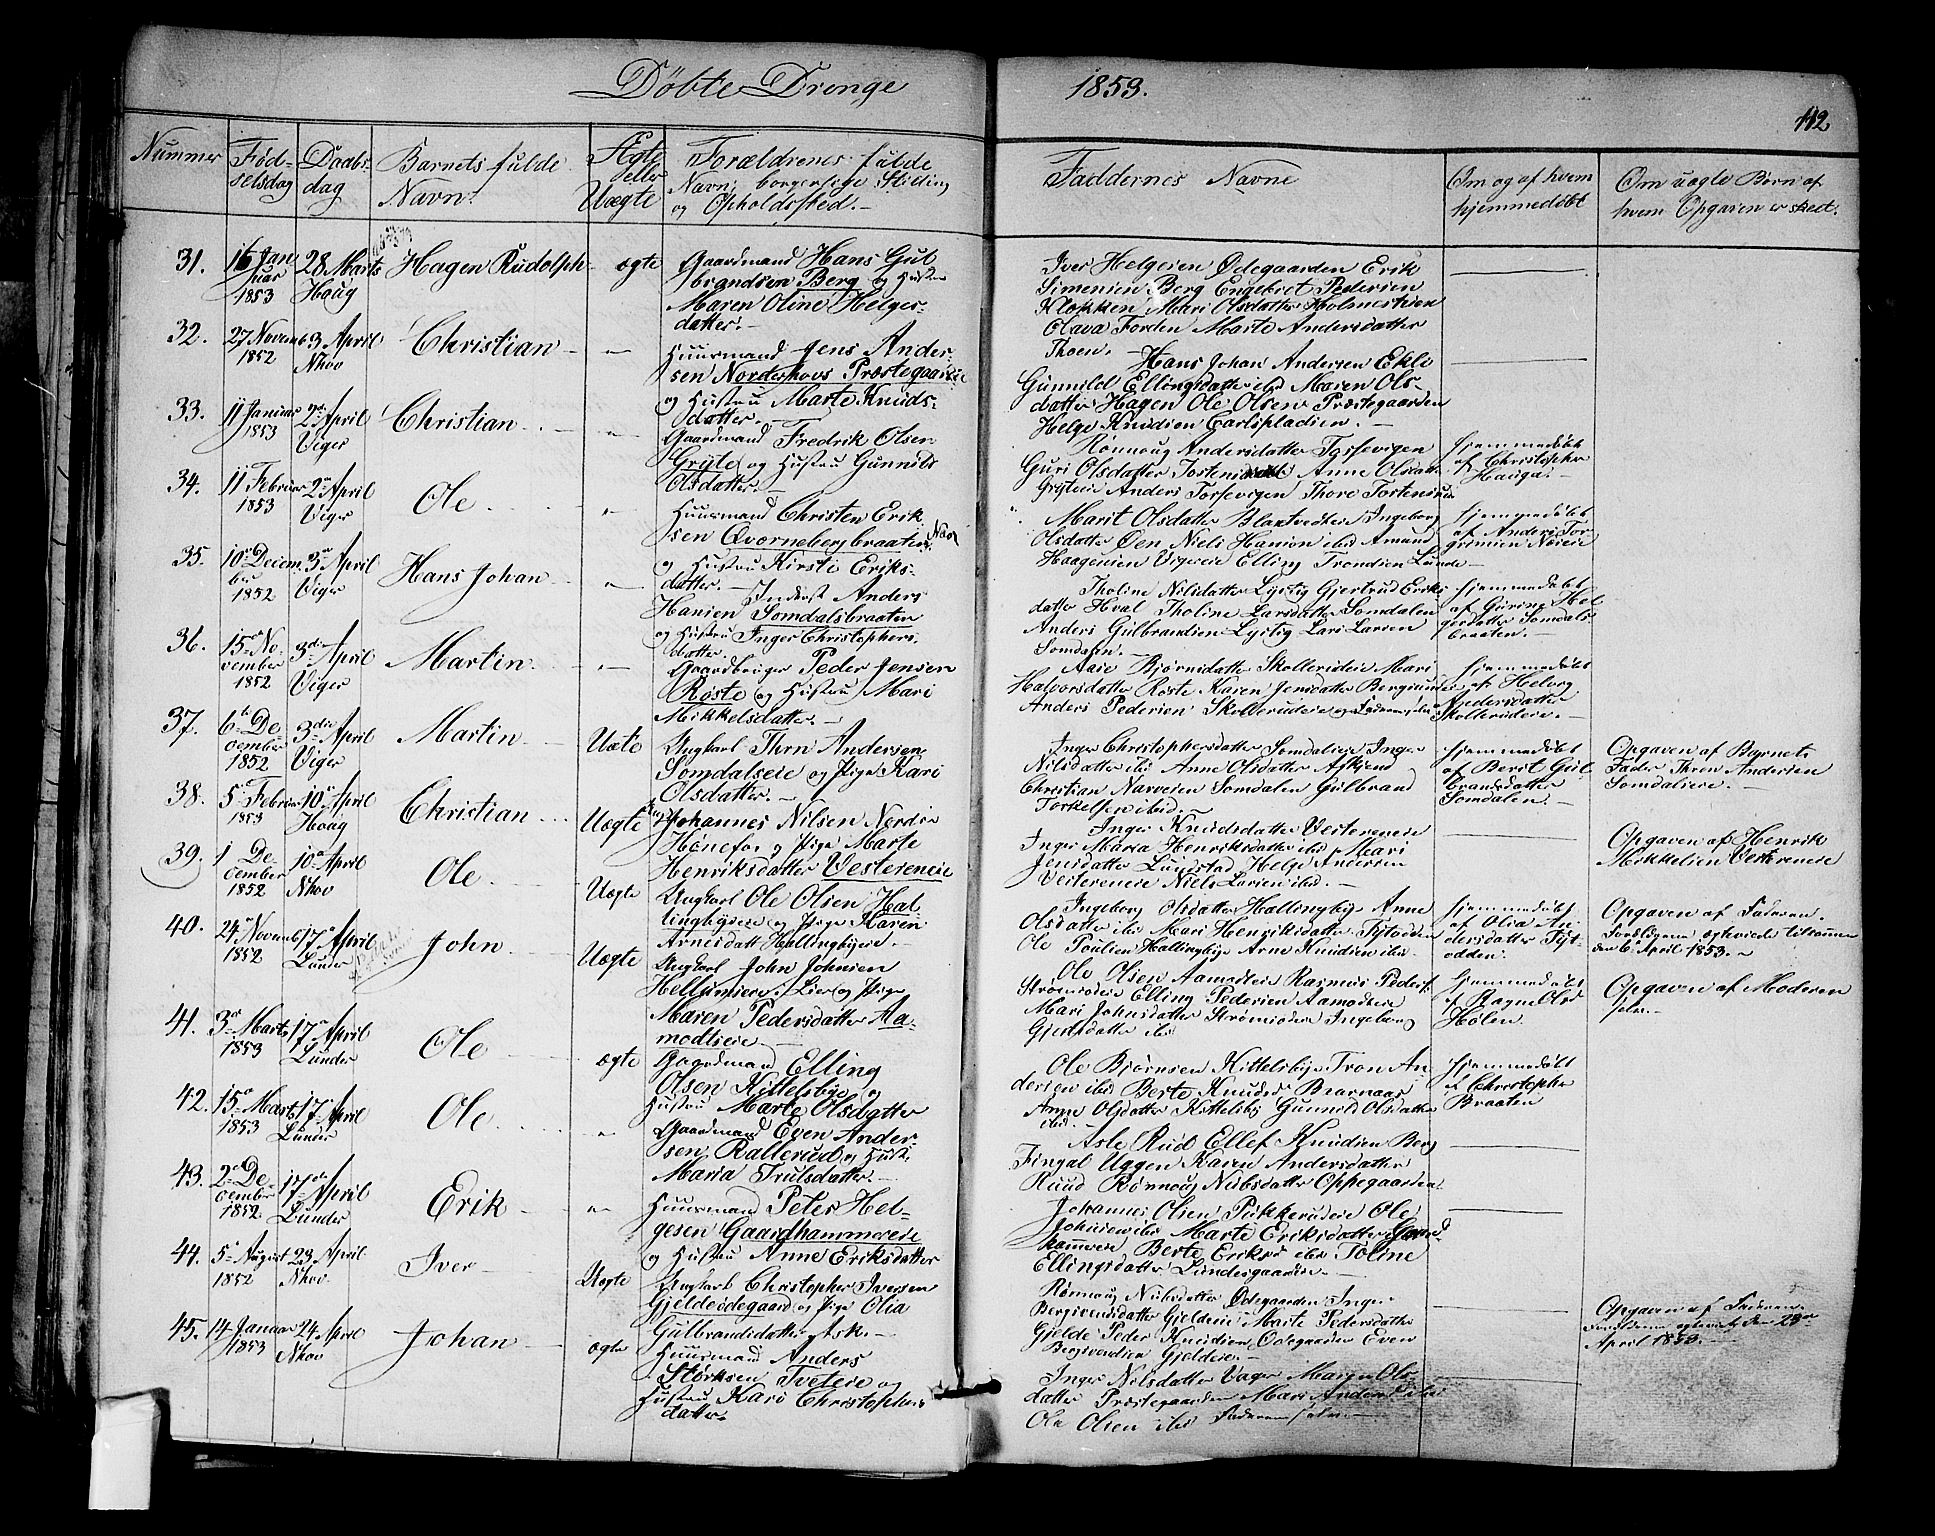 Döbte Drenge
1853.
112
Nummer
Fød-
selsdag
Daabs-
dag
Barnets fulde
Navn.
Ægte
eller
Uægte
Forældrenes fulde
Navn, borgerlige Stilling
og Opholdssted.
Faddernes Navne
Om og af hvem
hjemmedøbt
Om uægte Børn af
hvem Opgaven er skeet.
31.
16 Jan
uar
1853
28 Marts
Haug
Hagen Rudolph
ægte
Gaardmand Hans Gul
brandsen Berg og Hustru
Maren Oline Helges-
datter.
Iver Helgesen Ødegaarden Erik
Simensen Berg Engebret Pedersen
Klokken Mari Olsdatter Holmestien
Olava Forden Marte Andersdatter
Thoen.
32.
27 Novemb
1852
3 April
Nhov
Christian
"
Huusmand Jens Ander-
sen Norderhovs Præstegaardseie
og Hustru Marte Knuds-
datter.
Hans Johan Andersen Ekli
Gunnild Ellingsdatter ibid Maren Ols-
datter Hagen Ole Olsen Præstegaarden
Helge Knudsen Carlspladsen.
33.
11 Januar
1853
2den April
Viger
Christian
"
Gaardmand Fredrik Olsen
Gryte og Hustru Gunnild
Olsdatter.
Rønnoug Andersdatter Torsevigen
Guri Olsdatter Anne Olsdatter
Gryteie Anders Torsevigen Thore
hjemmedøbt
af Christopher
Hauga.
34.
11 Februar
1853
2den April
Viger
Ole
"
Huusmand Christen Erik
sen Qvernebergbraaten
og Hustru Kirsti Eriks-
datter.
Marit Olsdatter Ingeborg
Olsdatter Øen Niels Hansen ibid Amund
Haagensen Vigereie Elling Trondsen Lunde
hjemmedøbt
af Anders Tor-
grimsen Næseie
35.
10de Decem
ber
1852
3die April
Viger
Hans Johan
"
Inderst Anders
Hansen Somdalsbraaten
og Hustru Inger Christophers
datter.
Tholine Nilsdatter Lystig Gjertrud Eriks
datter Hval Tholine Larsdatter Somdalen
Anders Gulbrandsen Lystig Lars Larsen
Somdalen.
hjemmedøbt
af Guring Hel
gesdatter Somdals
braaten.
36.
15de No-
vember
1852
3die April
Viger
Martin
"
Gaardbruger Peder Jensen
Røste og Hustru Mari
Mikkelsdatter.
Aase Bjørnsdatter Skollerudeie Mari
Halvorsdatter Røste Karen Jensdatter Bergsund
Anders Pedersen Skollerudeie og Faderen selv
hjemmedøbt
af Helvig
Pedersdatter
Skollerudeie.
37.
6te De-
cember
1852
3die April
Viger
Martin
Uæte
Ungkarl Thrn Andersen
Somdalseie og Pige Kari
Olsdatter.
Inger Christophersdatter Somdalseie Inger
Nilsdatter ibid Anne Olsdatter
Christian Narvesen Somdalen Gulbrand
Torkelsen ibid.
hjemmedøbt
af Berit Gul
brandsdatter
Somdalen.
Opgaven af Barnets
Fader Thron Andersen
Somdalseie.
38.
5te Februar
1853
10de April
Haug
Christian
Uægte
Johannes Nilsen Nordre
Hønefos og Pige Marte
Henriksdatter Vesterneie
Inger Knudsdatter Vesterneie
Inger Maria Henriksdatter ibid Mari
Jensdatter Lundstad Helge Andersen
Vesterneie Niels Larsen ibid.
Opgaven af Henrik
Mikkelsen Vesterneie
39.
1 De-
cember
1852
10de April
Nhov
Ole
Uægte
Ungkarl Ole Olsen Hal
lingbyeie og Pige Karen
Arnesdatt Hallingbyeie.
Ingeborg Olsdatter Hallingby Anne
Olsdatter ibid Mari Henriksdatter Tytodden
Ole Paulsen Hallingby Arne Knudsen ibid
hjemmedøbt
af Olia An
dersdatter Tyt-
odden.
Opgaven af Faderen.
den 6te April 1853.
40.
24 Novemb
1852
17de April
Lunder
John
Uægte
Ungkarl John Johnsen
Hellumseie, Lier og Pige
Maren Pedersdatter Aa-
modtseie.
Ole Olsen Aamodteie Rasmus Peders
Strømsodeie Elling Pedersen Aamodteie
Mari Johnsdatter Strømsoden Ingeborg
Gjertsdatter ibid
hjemmedøbt
af Ragne Olsd
Hølen.
Opgaven af Moderen
selv.
41.
3die Marts
1853
17de April
Lunder
Ole
ægte
Gaardmand Elling
Olsen Kittelsby og
Hustru Marte Olsdatter
Ole Bjørnsen Kittelsby Tron An
dersen ibid Berte Knudsd Braanaas
Anne Olsdatter Kittelsby Gunnild Olsdatter
ibid.
hjemmedøbt
af Christopher
Braaten
42.
15de Marts
1853
17de April
Lunder
Ole
"
Gaardmand Even Ander-
sen Rallerud og Hust.
Maria Trulsdatter.
Asle Rud Ellef Knudsen Berg
Fingal Uggen Karen Andersdatter
Ruud Rønnoug Nubsdatter Oppegaarden
43.
2den De-
cember
1852
17de April
Lunder
Erik
"
Huusmand Peter Hel-
gesen Gaardhammereie
og Hustru Anne Eriksdatter
Johannes Olsen Pukkerudeie Ole
Johnsen ibid Marte Eriksdatter Gaard
hammereie Berte Eriksd ibid Toline
Ellingsdatter Lundesgaarden.
44.
5te August
1852
23 April
Nhov
Iver
Uægte
Ungkarl Christopher Iversen
Gjeldeødegaard og Pige Olia
Gulbrandsdatter Ask.
Rønnoug Nubsdatter Ødegaarden Inger
Bergsvendsdatter Gjeldeie Marte Pedersdatter
Gjelde Peder Knudsen Ødegaarden Even
Bergsvendsen Gjeldeie.
Opgaven af Faderen.
den 23de
April 1853.
45.
14 Januar
1853
24 April
Nhov
Johan
ægte
Huusmand Anders
Størksen Tveteie og
Hustru Kari Christophers
datter.
Inger Nilsdatter Vager Maren Ols-
datter Præstegaarden Mari Andersd ibid
Ole Olsen ibid Faderen selv.